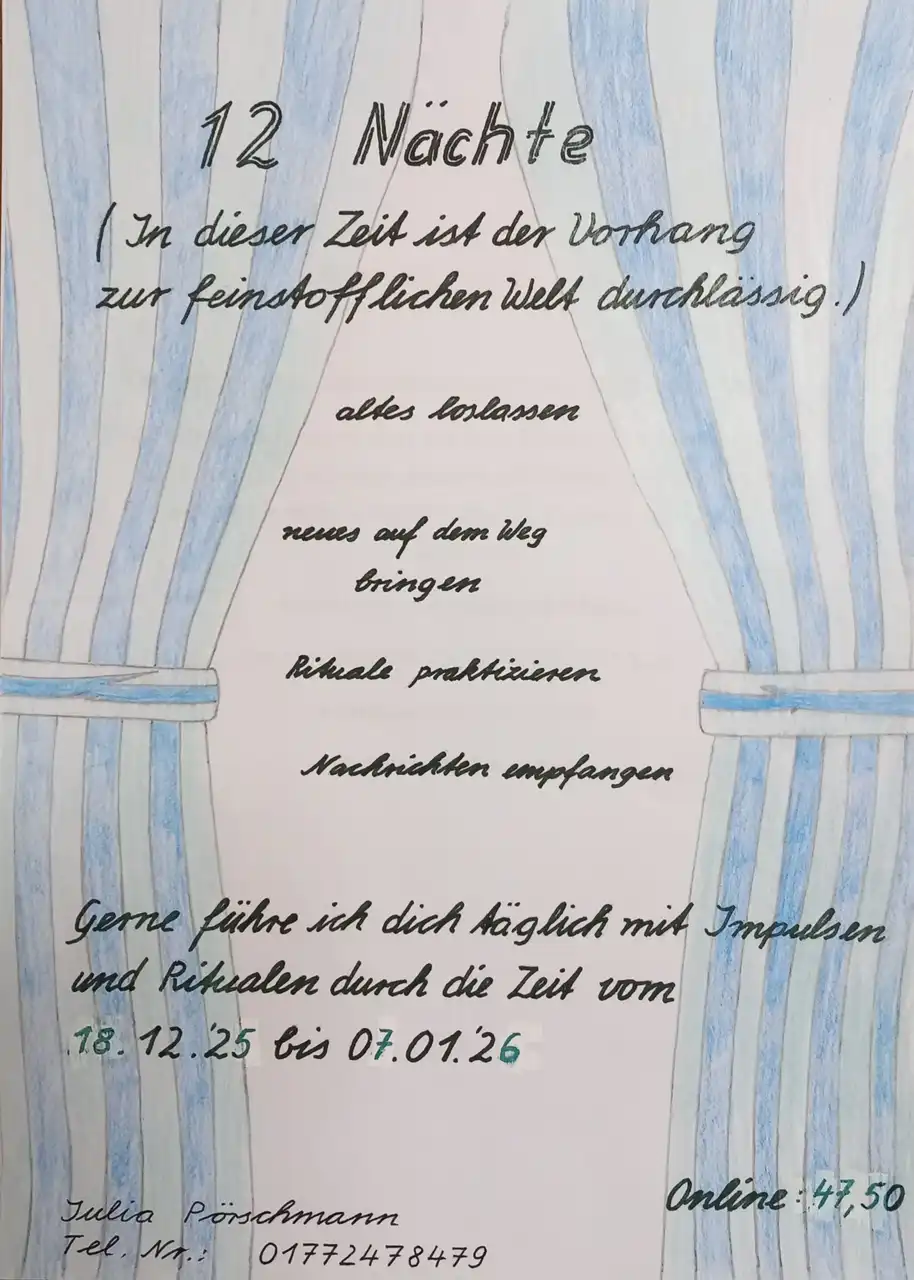 12 Nächte
(In dieser Zeit ist der Vorhang
zur feinstofflichen Welt durchlässig.)
altes loslassen
neues auf dem Weg
bringen
Rituale praktizieren
Nachrichten empfangen
Gerne führe ich dich täglich mit Impulsen
und Ritualen durch die Zeit vom
18.12.'25 bis 07.01.'26
Online: 47,50
Julia Pörschmann
Tel. Nr.: 01772478479